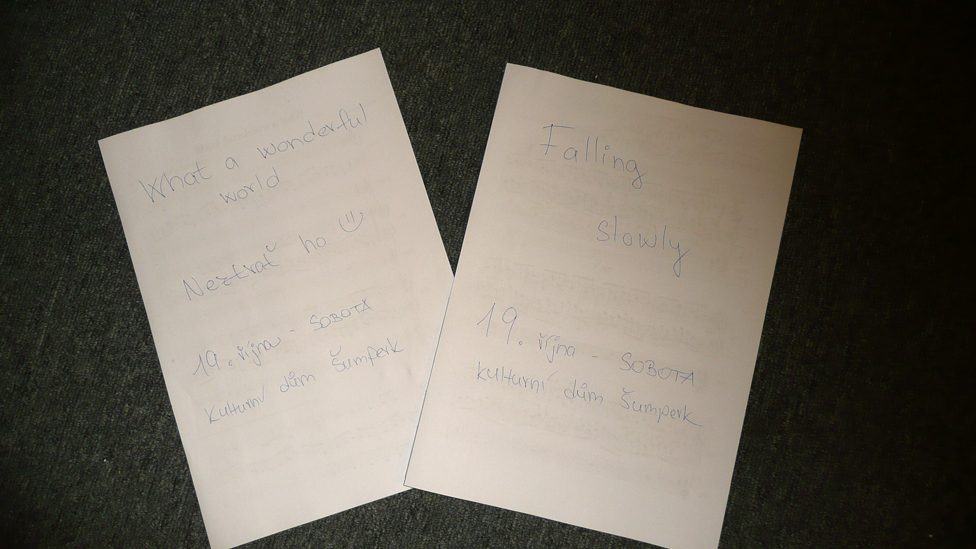 What a wonderful
world
Neztrať ho
19. října - SOBOTA
Kulturní dům Šumperk
Falling
slowly
19. října - SOBOTA
kulturní dům Šumperk